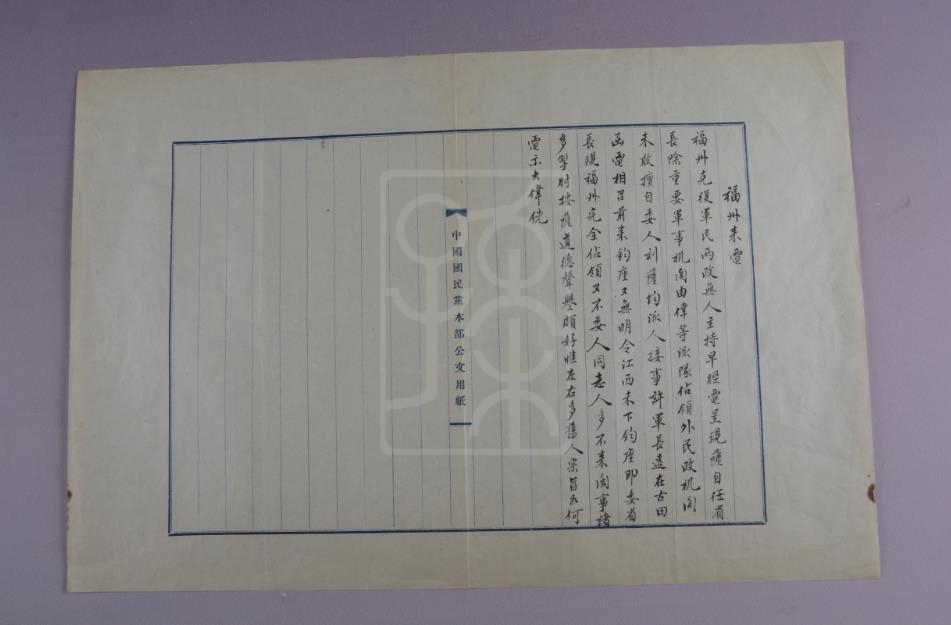 福州来電
福州克復軍民両政無人主持早經電呈現薩自任省
長除重要軍事机関由偉等派隊佔領外民政机関
未敢擅自委人刘薩均派人接事許軍長遠在古田
函電相召前来鈞座又無明令江西未下鈞座即委省
長現福州完全佔領又不委人同志人多不来閩事諸
多掣肘按薩道德聲譽頗好惟左右多舊人宗旨如何
電示大偉
中國國民黨本部公文用紙